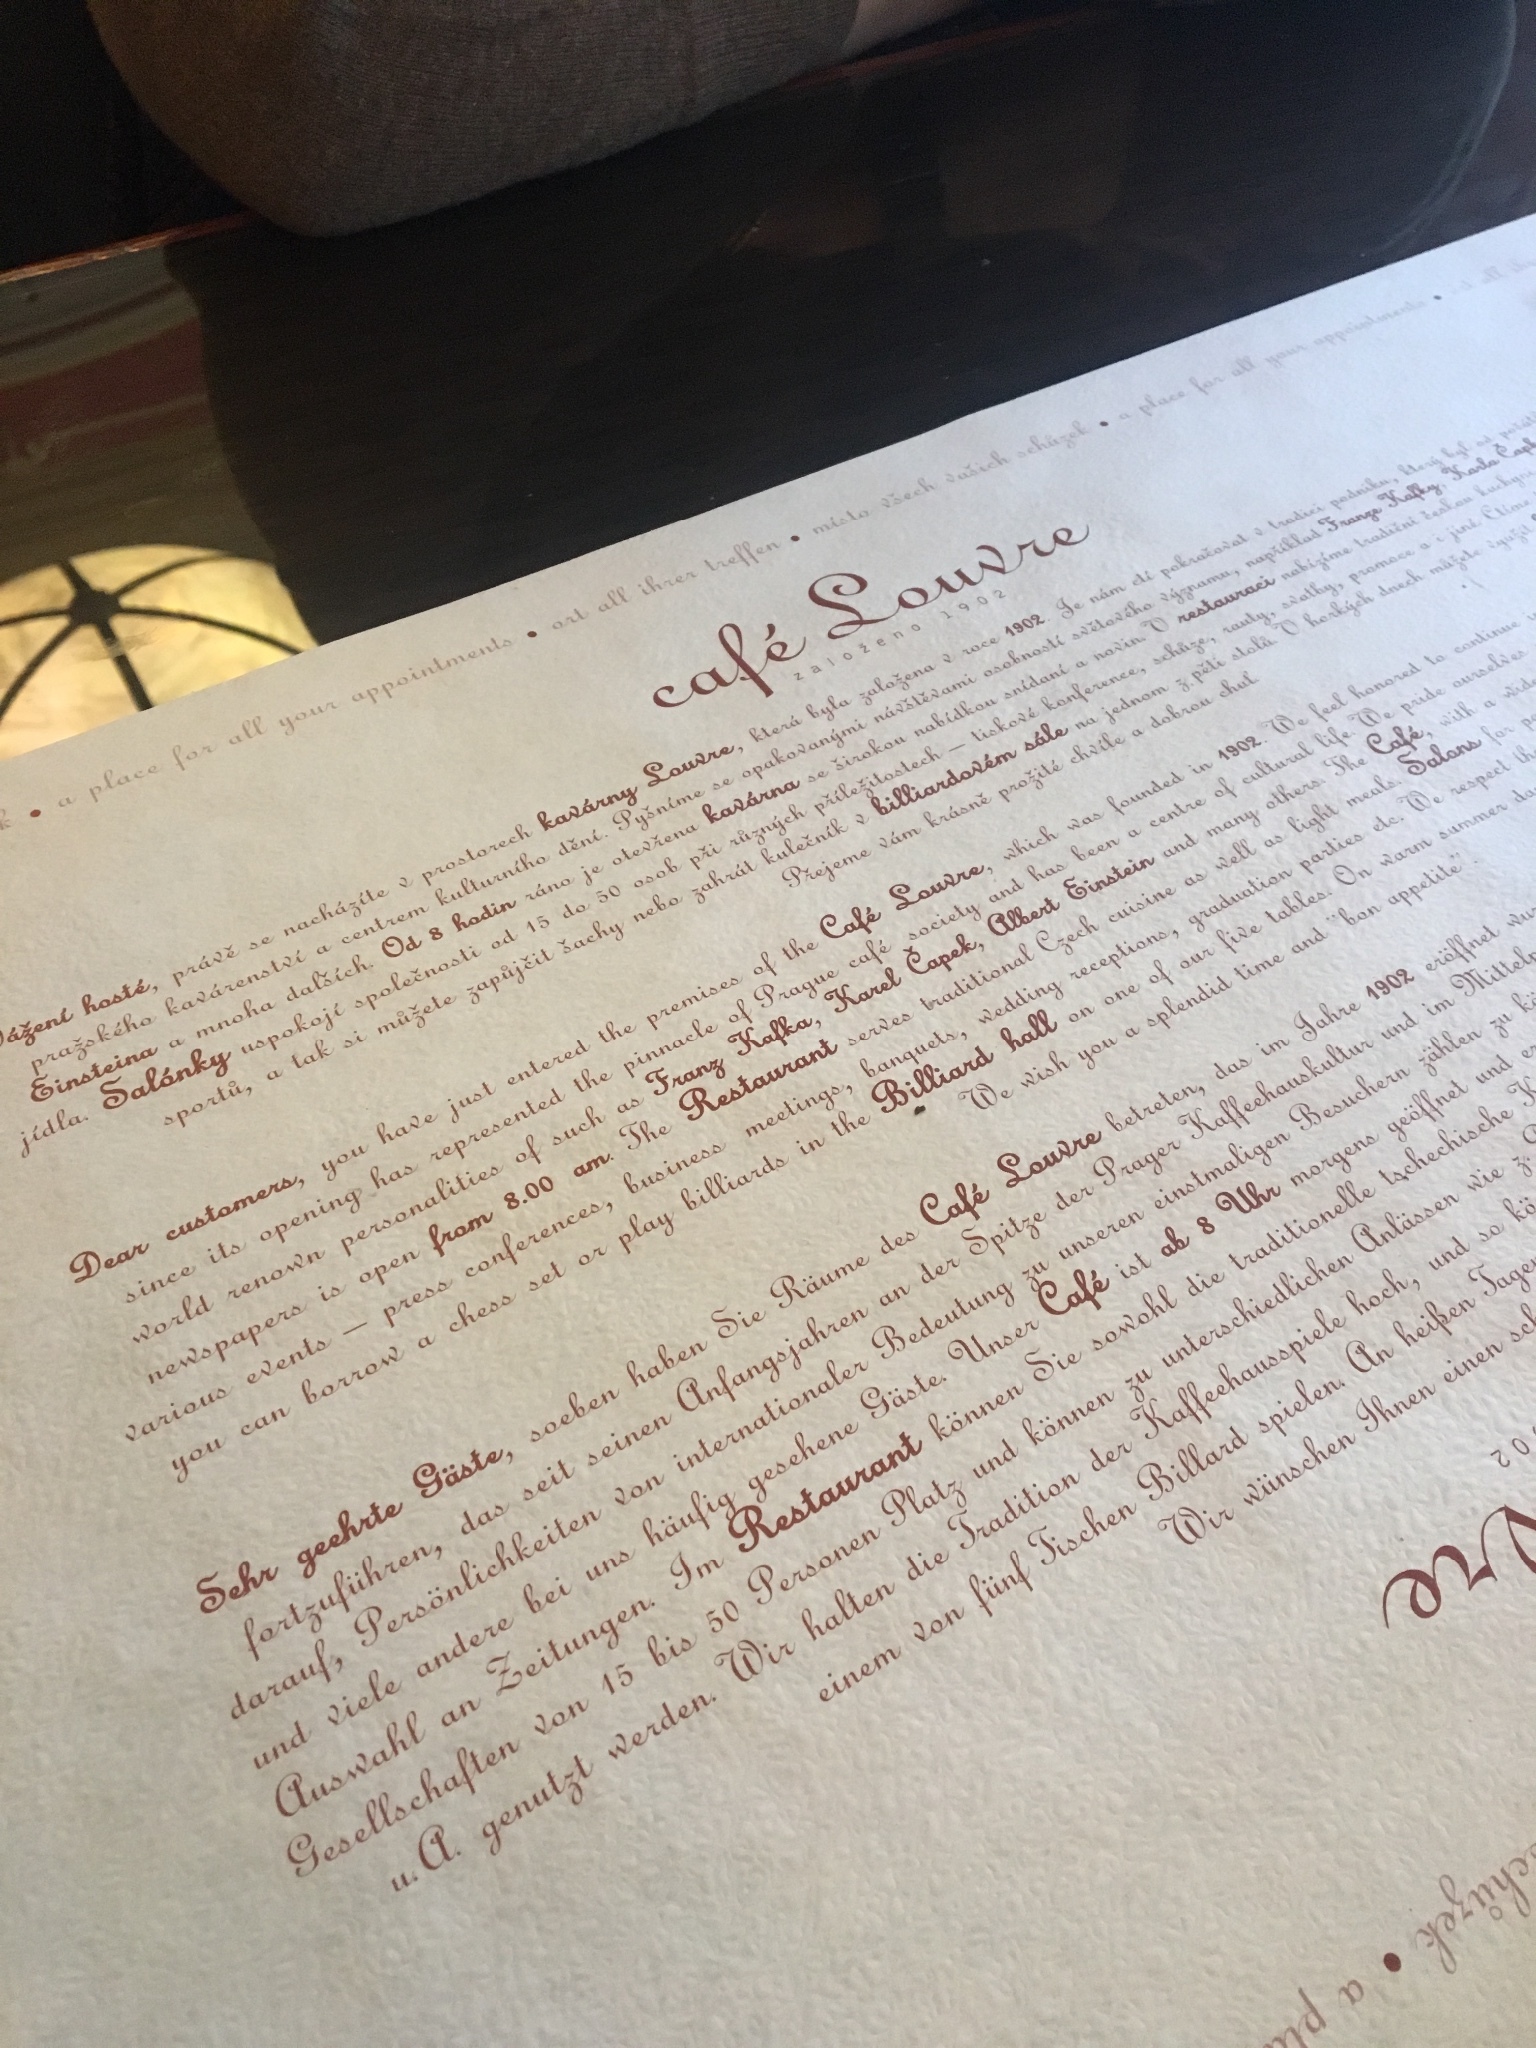 k • a place for all your appointments • ort all ihrer treffen • místo všech vašich schůzek • a place for all your appointments •
café Louvre
založeno 1902
Vážení hosté, právě se nacházíte v prostorech kavárny Louvre, která byla založena v roce 1902. Je nám ctí pokračovat v tradici podniku, který byl
pražského kavárenství a centrem kulturního dění. Pyšníme se opakovanými návštěvami osobností světového významu, například Franze Kafky, Karla Čapka
Einsteina a mnoha dalších. Od 8 hodin ráno je otevřena kavárna se širokou nabídkou snídaní a novin. V restauraci nabízíme tradiční českou
jídla. Salónky uspokojí společnosti od 15 do 50 osob při různých příležitostech – tiskové konference, schůze, rauty, svatby, promoce a i jiné. Ctíme
sportů, a tak si můžete zapůjčit šachy nebo zahrát kulečník v billiardovém sále na jednom z pěti stolů. V horkých dnech můžete
Přejeme vám krásně prožité chvíle a dobrou chuť
Dear customers, you have just entered the premises of the Café Louvre, which was founded in 1902. We feel honored to continue
since its opening has represented the pinnacle of Prague café society and has been a centre of cultural life. We pride ourselves
world renown personalities of such as Franz Kafka, Karel Čapek, Albert Einstein and many others. The Café, with a wide
newspapers is open from 8.00 am. The Restaurant serves traditional Czech cuisine as well as light meals. Salons for
various events – press conferences, business meetings, banquets, wedding receptions, graduation parties etc. We respect
you can borrow a chess set or play billiards in the Billiard hall on one of our five tables. On warm summer
We wish you a splendid time and "bon appetite".
Sehr geehrte Gäste, soeben haben Sie Räume des Café Louvre betreten, das im Jahre 1902 eröffnet
fortzuführen, das seit seinen Anfangsjahren an der Spitze der Prager Kaffeehauskultur und im
darauf, Persönlichkeiten von internationaler Bedeutung zu unseren einstmaligen Besuchern zählen zu
und viele andere bei uns häufig gesehene Gäste. Unser Café ist ab 8 Uhr morgens geöffnet und
Auswahl an Zeitungen. Im Restaurant können Sie sowohl die traditionelle tschechische
Gesellschaften von 15 bis 50 Personen Platz und können zu unterschiedlichen Anlässen wie z.
u. A. genutzt werden. Wir halten die Tradition der Kaffeehausspiele hoch, und so
einem von fünf Tischen Billard spielen. An heißen Tagen
Wir wünschen Ihnen einen
schůzek • a